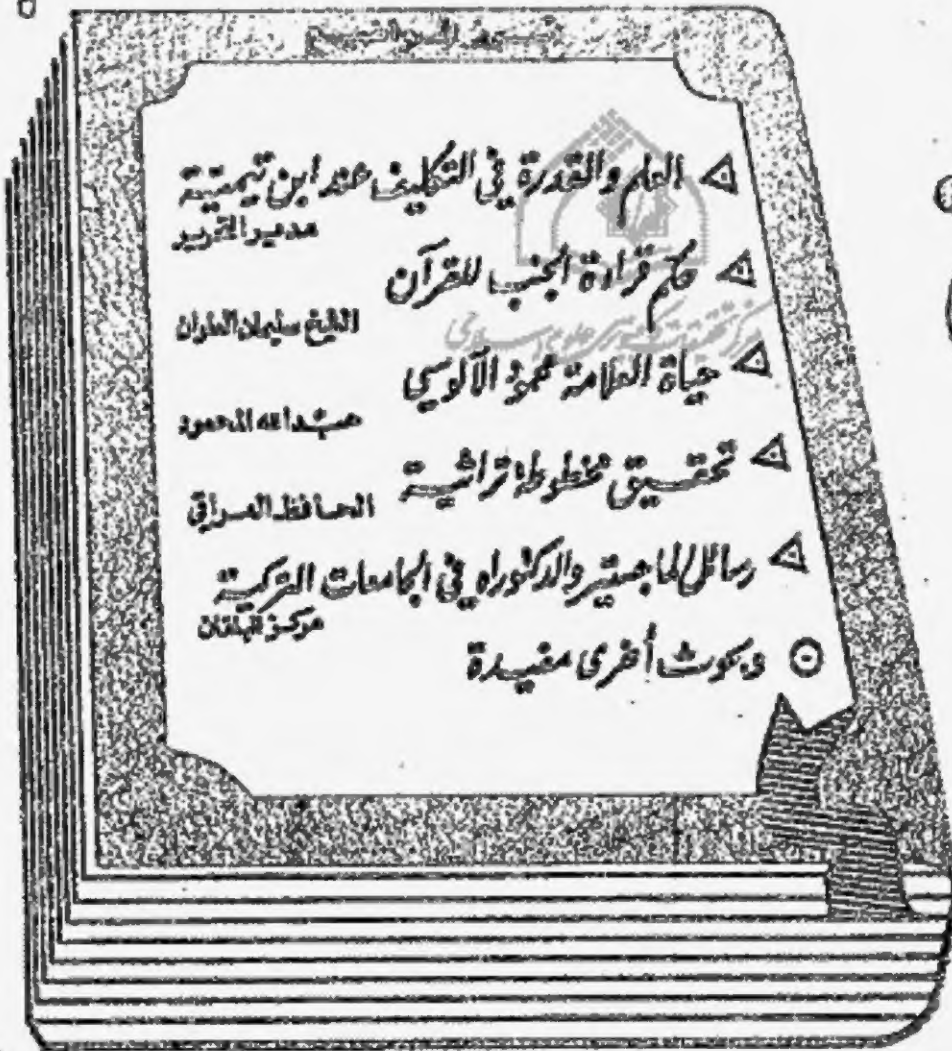 العلم والقدرة في التكليف عند ابن تيمية
مدير التحرير
حكم قراءة الجنب للقرآن
الشيخ سليمان العلوان
حياة العلامة محمود الآلوسي
عبدالله المحمود
تحقيق مخطوطة تراثية
الحافظ العراقي
رسائل الماجستير والدكتوراه في الجامعات التركية
مركز البلقان
وبحوث أخرى مفيدة